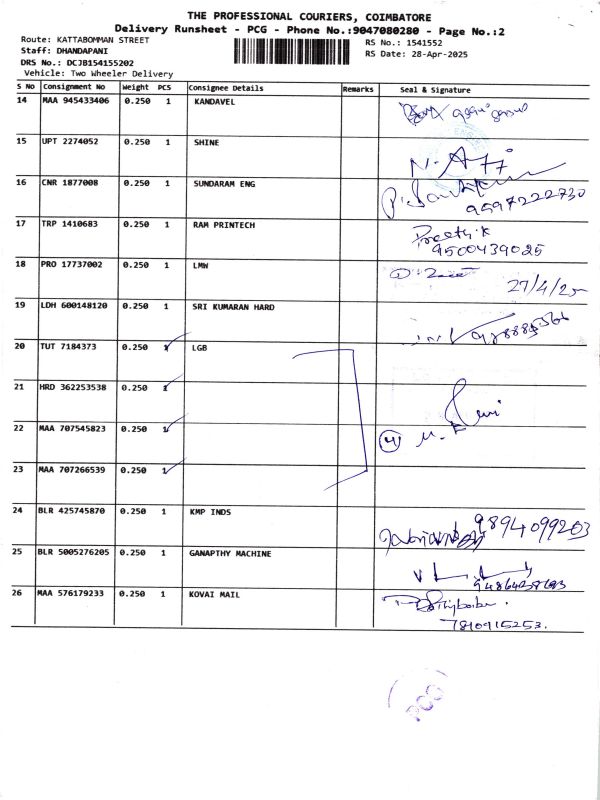 THE PROFESSIONAL COURIERS, COIMBATORE
Delivery Runsheet - PCG - Phone No.:9047080280 - Page No.:2
Route: KATTABOMMAN STREET
Staff: DHANDAPANI
DRS No.: DCJB154155202
Vehicle: Two Wheeler Delivery
RS No.: 1541552
RS Date: 28-Apr-2025
S No Consignment No Weight PCS Consignee Details Remarks Seal & Signature
14 MAA 945433406 0.250 1 KANDAVEL
15 UPT 2274052 0.250 1 SHINE
16 CNR 1877008 0.250 1 SUNDARAM ENG
9597222730
17 TRP 1410683 0.250 1 RAM PRINTECH Preethi K
9500439025
18 PRO 17737002 0.250 1 LMW
27/4/25
19 LDH 600148120 0.250 1 SRI KUMARAN HARD
20 TUT 7184373 0.250 1 LGB
21 HRD 362253538 0.250 1
22 MAA 707545823 0.250 1 (4)
23 MAA 707266539 0.250 1
24 BLR 425745870 0.250 1 KMP INDS 9894099203
25 BLR 5005276205 0.250 1 GANAPTHY MACHINE
26 MAA 576179233 0.250 1 KOVAI MAIL
7810915253.
PCG